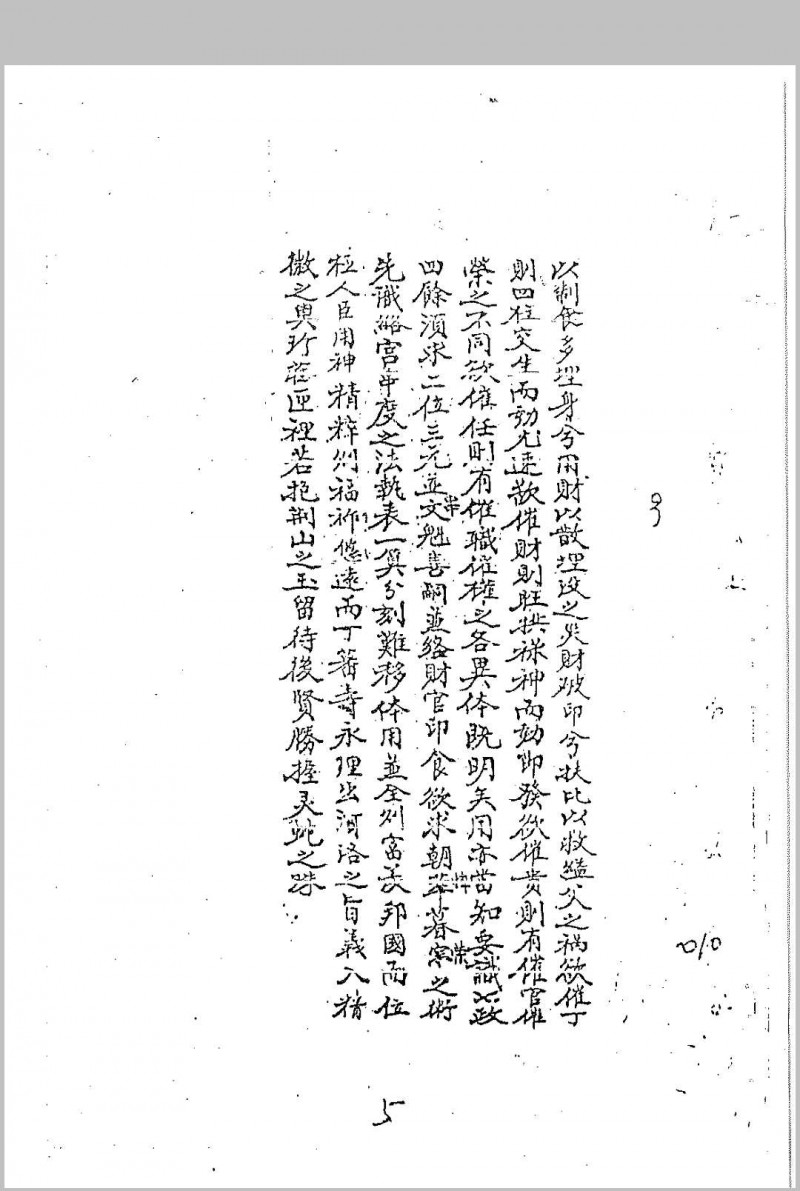 以制食多埋身兮用財以散埋没之災財破印兮扶比以救縊父之禍欲催丁
則四柱交生而効尤速欲催財則旺拱祿神而効即發欲催貴則有催官催
榮之不同欲催任則有催職催權之各異体既明矣用亦當知要識七政
四餘須求二位三元並文魁喜嗣並絡財官印食欲求朝葬暮榮之術
先識絡宮串度之法執表一算分刻難移体用並全則富美邦國而位
极人臣用神精粹則福祚悠遠而丁蕃壽永理出河洛之旨義入精
微之奥珍藏匣裡若抱荆山之玉留待後賢勝握灵蛇之珠
5